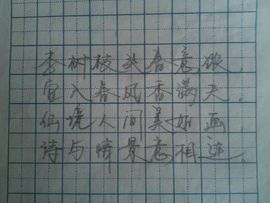 李树枝头春意微，
宜入春风香满天。
仙境人间美如画，
诗与情景意相连。